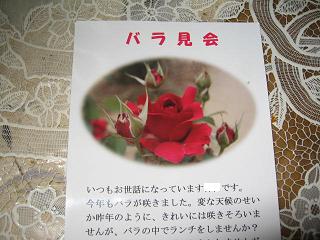 バラ見会
いつもお世話になっています です。
今年もバラが咲きました。変な天候のせい
か昨年のように、きれいには咲きそろいま
せんが、バラの中でランチをしませんか？